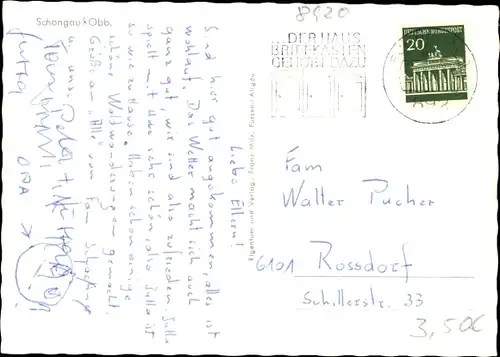 Schongau Obb.
8920
... DER HAUS
BRIEFKASTEN
GEHÖRT DAZU
DEUTSCHE BUNDESPOST
20
Liebe Eltern!
Sind hier gut angekommen, alles ist
wohlauf. Das Wetter macht sich auch
ganz gut, wir sind also zufrieden. Jutta
spielt mit Uwe sehr schön, also Jutta ist
so wie zu Hause. Haben schon einige
schöne Waldwanderungen gemacht.
Grüße an "Alle" von Fam.
u. uns. Peter +
Jutta
OPA →
Eigentum und Verlag: Franz Milz, Füssen Allgäu
Fam
Walter Pucher
6101 Rossdorf
Schillerstr. 33
3,50€